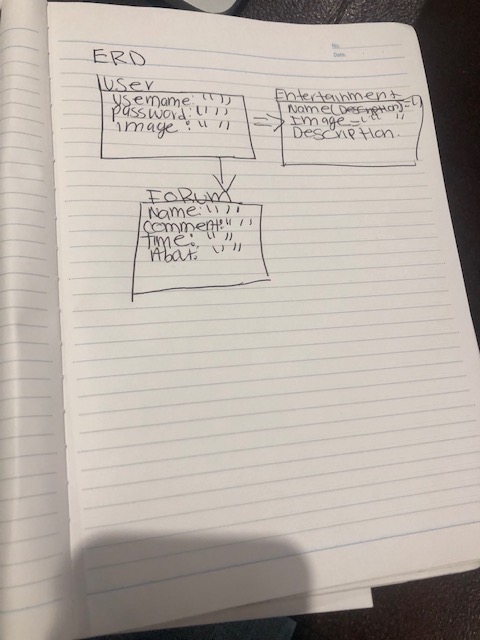 ERD
User
username: "",
password: "",
image: ""
Entertainment
Name(Description)=()
Image = ""
Description.
FORUM
Name: "",
comment: "",
Time: ""